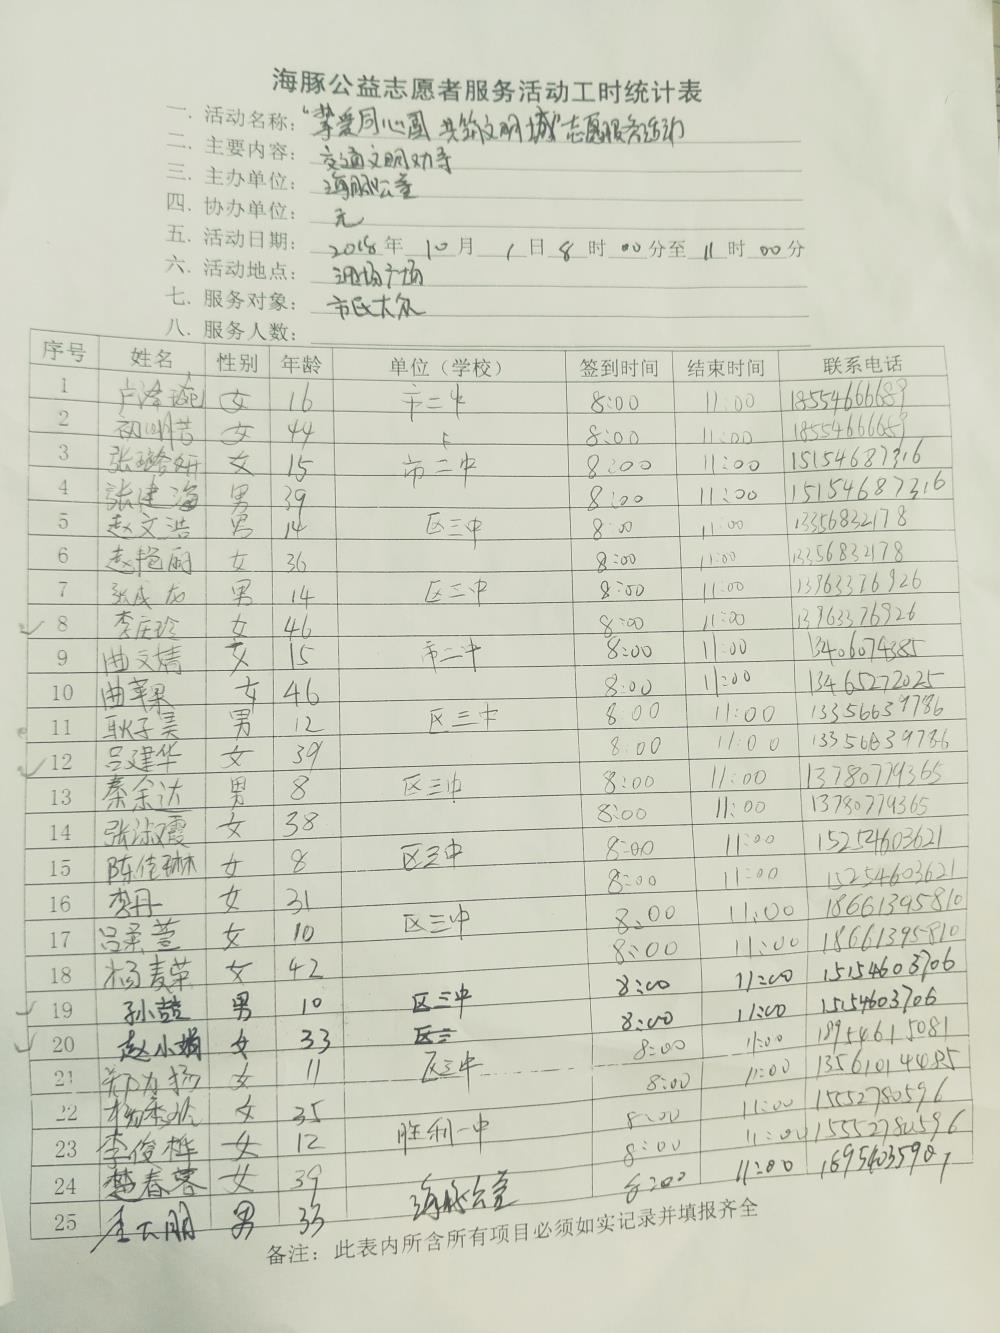 海豚公益志愿者服务活动工时统计表
一. 活动名称: "挚爱同心圆 共筑文明城"志愿服务活动
二. 主要内容: 交通文明劝导
三. 主办单位: 海豚公益
四. 协办单位: 无
五. 活动日期: 2018年 10月 1日 8时 00分至 11时 00分
六. 活动地点: 广场
七. 服务对象: 市民大众
八. 服务人数:
序号 姓名 性别 年龄 单位（学校） 签到时间 结束时间 联系电话
1 女 16 市二中 8:00 11:00 18554666689
2 女 44 8:00 11:00
3 张璐妍 女 15 市二中 8:00 11:00 15154687316
4 张建海 男 39 8:00 11:00 15154687316
5 赵文浩 男 14 区三中 8:00 11:00 13356832178
6 赵艳丽 女 36 8:00 11:00 13356832178
7 张成龙 男 14 区三中 8:00 11:00 13963376926
8 李庆玲 女 46 8:00 11:00 13963376926
9 曲文婧 女 15 市二中 8:00 11:00 13406074385
10 曲苹果 女 46 8:00 11:00 13465272025
11 耿子昊 男 12 区三中 8:00 11:00 13356639786
12 吕建华 女 39 8:00 11:00 13356639786
13 秦余达 男 8 区三中 8:00 11:00 13780779365
14 张淑霞 女 38 8:00 11:00 13780779365
15 陈佳琳 女 8 区三中 8:00 11:00 15254603621
16 李丹 女 31 8:00 11:00 15254603621
17 吕柔萱 女 10 区三中 8:00 11:00 18661395810
18 杨麦荣 女 42 8:00 11:00 18661395810
19 孙喆 男 10 区三中 8:00 11:00 15154603706
20 赵小娟 女 33 区三 8:00 11:00 15154603706
21 女 11 区三中 8:00 11:00 18954615081
22 女 35 8:00 11:00 13561014485
23 李俊桦 女 12 胜利一中 8:00 11:00 15552780596
24 楚春蓉 女 39 8:00 11:00 15552780596
25 男 33 海豚公益 8:00 11:00
备注：此表内所含所有项目必须如实记录并填报齐全